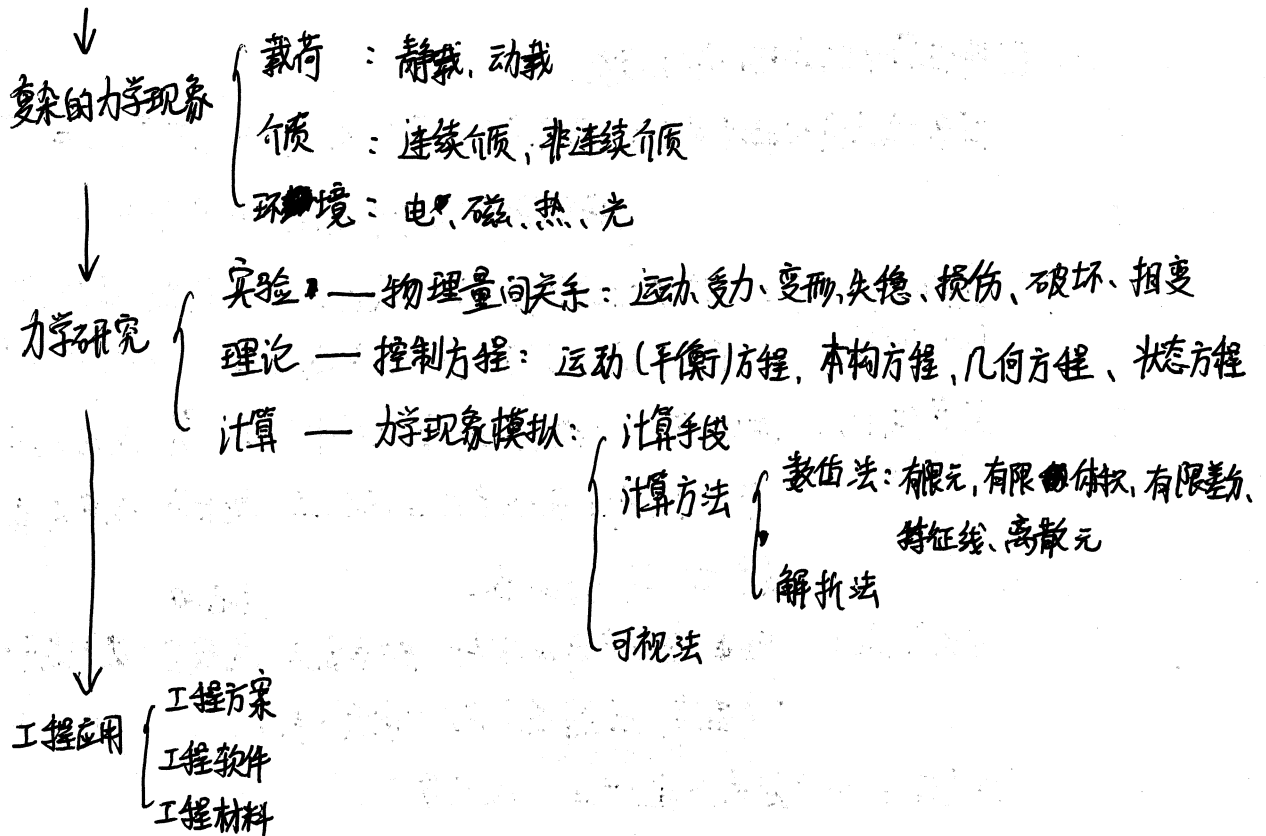 复杂的力学现象
载荷：静载、动载
介质：连续介质，非连续介质
环境：电、磁、热、光
力学研究
实验 — 物理量间关系：运动、受力、变形、失稳、损伤、破坏、相变
理论 — 控制方程：运动(平衡)方程，本构方程，几何方程、状态方程
计算 — 力学现象模拟：计算手段
计算方法
数值法：有限元，有限体积，有限差分、
特征线、离散元
解析法
可视法
工程应用
工程方案
工程软件
工程材料